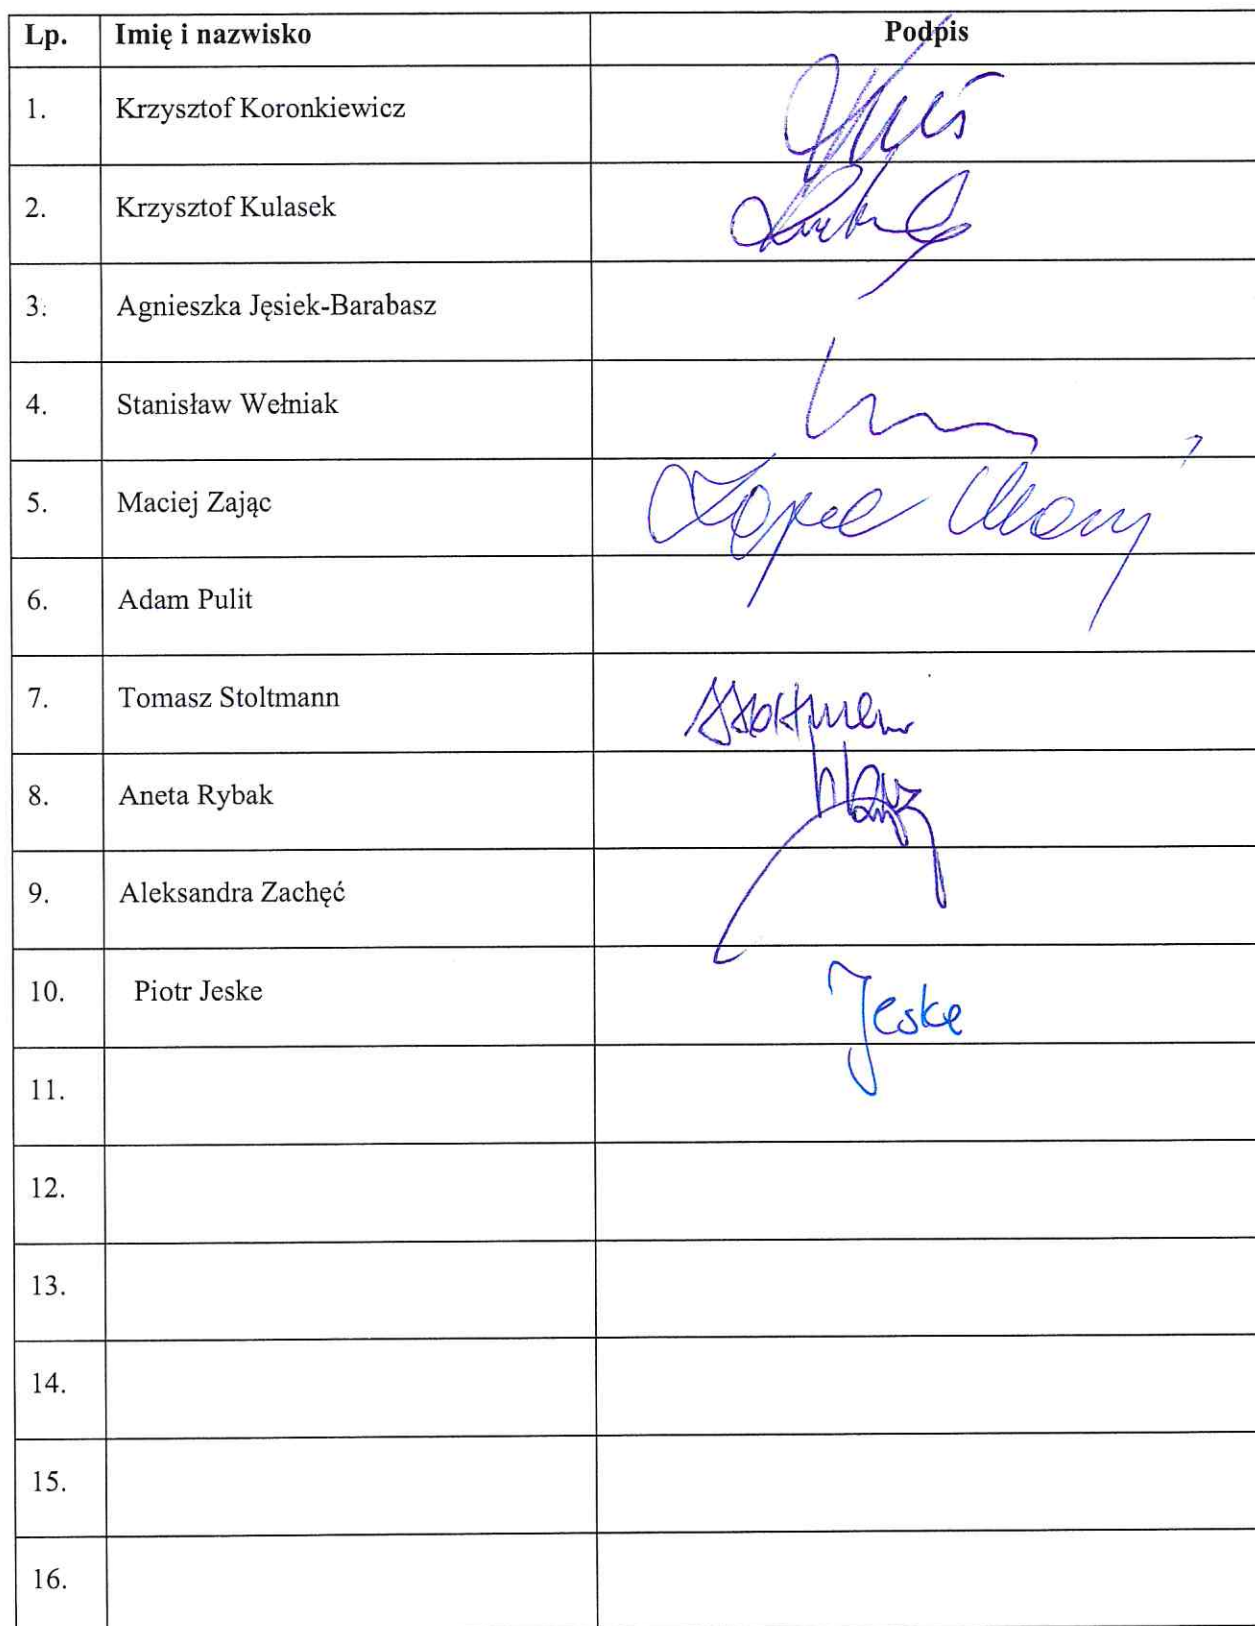 Lp. Imię i nazwisko Podpis
1. Krzysztof Koronkiewicz
2. Krzysztof Kulasek
3. Agnieszka Jęsiek-Barabasz
4. Stanisław Wełniak
5. Maciej Zając
6. Adam Pulit
7. Tomasz Stoltmann
8. Aneta Rybak
9. Aleksandra Zachęć
10. Piotr Jeske Jeske
11.
12.
13.
14.
15.
16.